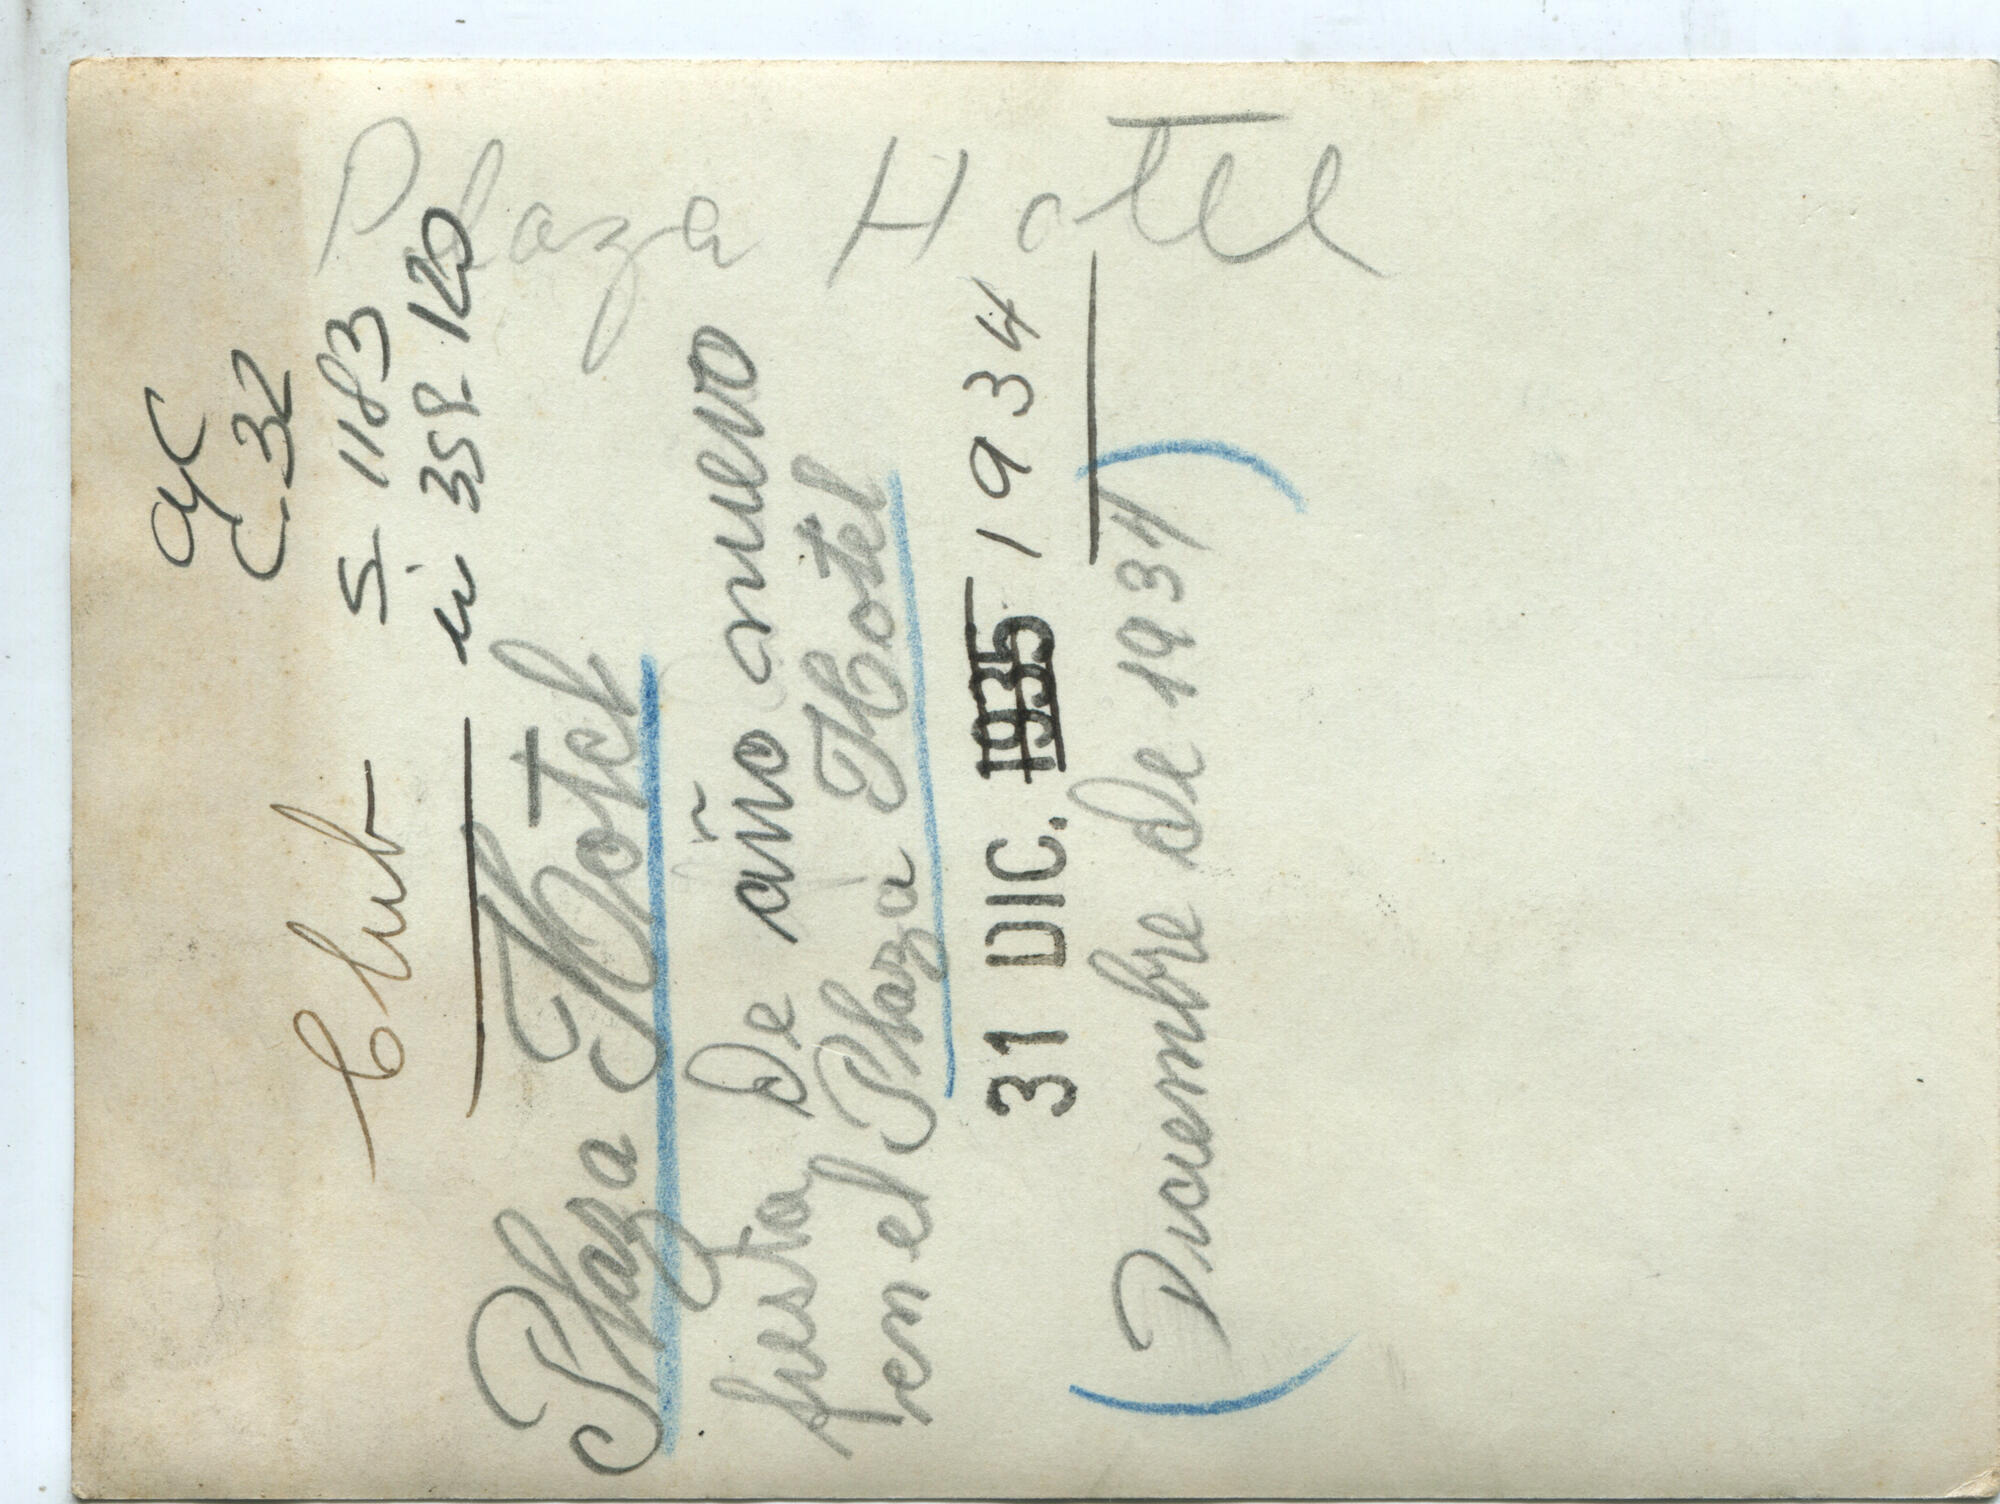 Plaza Hotel
ayC
C-32
Club
S-1183
ei 358-120
Plaza Hotel
fiesta De año nuevo
en el Plaza Hotel
31 DIC. 1935 1934
(Diciembre De 1934)